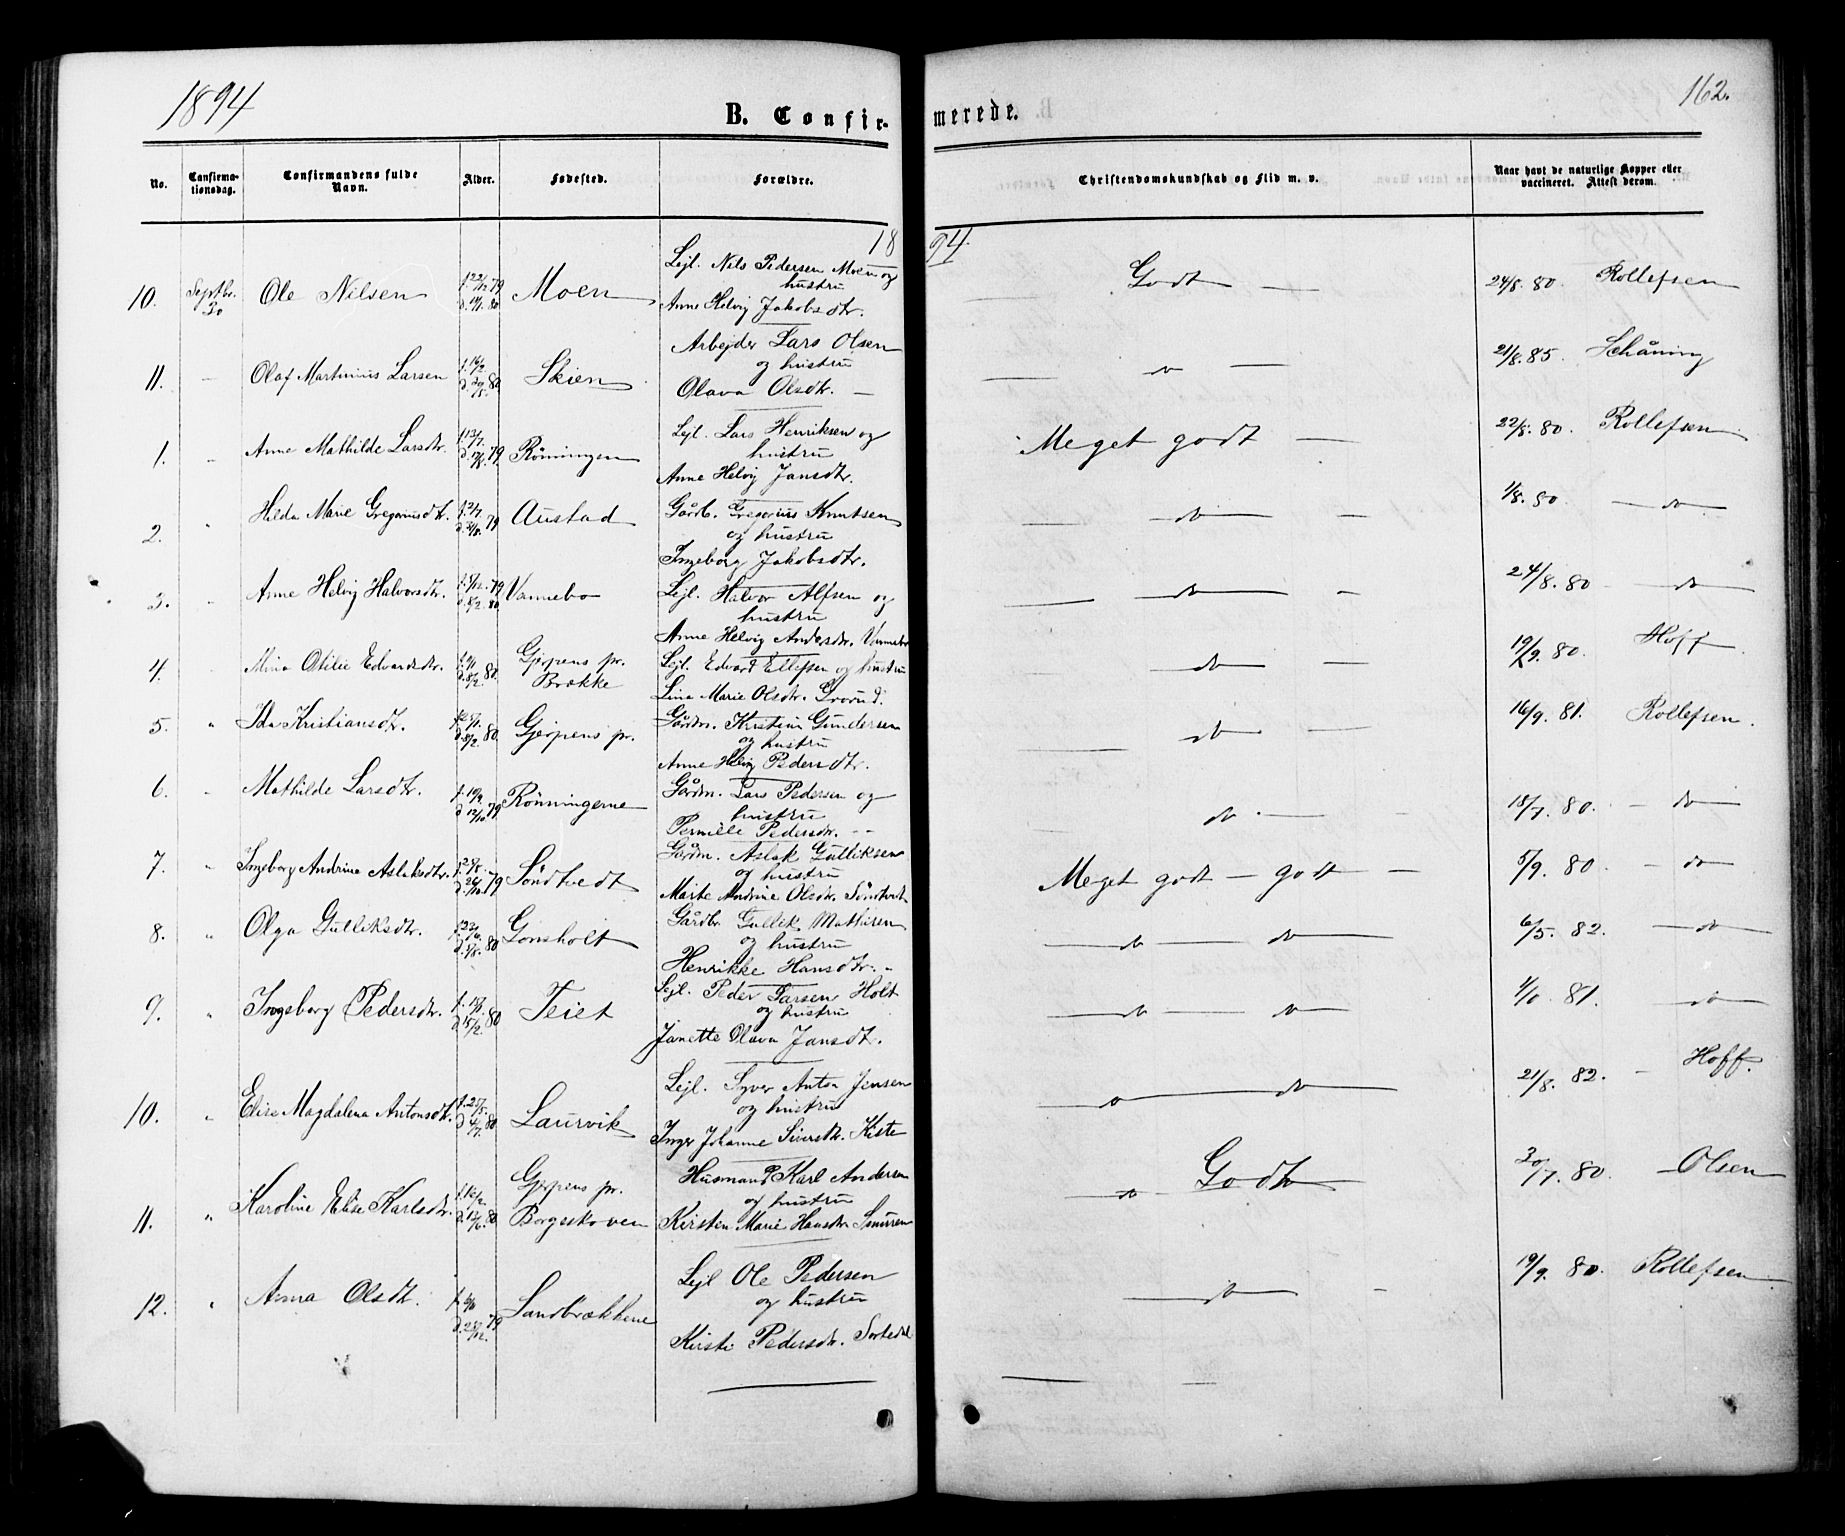 1894
162.
B. Confirmerede.
No. Confirmationsdag. Confirmandens fulde Navn. Alder. Fødested. Forældre. Christendomskundskab og Flid m. v. Naar havt de naturlige Kopper eller vaccineret. Attest derom.
1894.
10. Septbr. 30 Ole Nilsen f. 22/12 79 d. 11/1 80 Moen Lejl. Nils Pedersen Moen og
hustru
Anne Helvig Jakobsdtr. Godt — 24/8. 80. Rollefsen
11. — Olaf Martinius Larsen Skien Arbejder Lars Olsen
og hustru
Olava Olsdtr. — — do — 21/8. 85. Schåning
1. Anne Mathilde Larsdtr. Rönningen Lejl. Lars Henriksen og
hustru
Anne Helvig Jansdtr. Meget godt — 22/8. 80. Rollefsen
2. " Hilda Marie Gregoriusdtr. Austad Gårdb. Gregorius Knutsen
og hustru
Ingeborg Jakobsdtr. — do — 1/8. 80 — do
3. Anne Helvig Halvorsdtr. f. 5/12. 79 d. 8/2. 80. Vannebo Lejl. Halvor Alfsen og
hustru
Anne Helvig Andersdtr. Vannebo — do — 24/8. 80 — do
4. Mina Otilie Edvardsdtr. Gjerpens pr.
Brække Lejl. Edvard Ellefsen og hustru
Lina Marie Olsdtr. — do — 19/9. 80. Hoff
5. " Ida Kristiansdtr. Gjerpens pr. Gårdm. Kristian Gundersen
og hustru
Anne Helvig Pedersdtr. — do — 16/9. 81. Rollefsen.
6. Mathilde Larsdtr. f. 10/9 d. 12/10 79 Rönningerne Gårdm. Lars Pedersen og
hustru
Pernille Pedersdtr. — do — 18/7. 80. — do
7. " Ingeborg Andrine Aslaksdtr. Söndtvedt Gårdm. Aslak Gulliksen
og hustru
Marte Andrine Olsdtr. Söndtvedt Meget godt — godt — 5/9. 80 — do
8. " Olga Gulliksdtr. Gonsholt Gårdbr. Gullik Mathisen
og hustru
Henrikke Hansdtr. — do — do 6/5. 82. — do
9. " Ingeborg Pedersdtr. Teiet Lejl. Peder Larsen Holt
og hustru
Janette Olava Jansdtr. — do — do 81. — do
10. " Elise Magdalena Antonsdtr. Laurvik Lejl. Syver Anton Jensen
og hustru
Inger Johanne Siversdtr. Kiste — do — do 21/8. 82. — Hoff.
11. " Karoline Elise Karlsdtr. Gjerpens pr.
Borgeskoven Husmand Karl Andersen
og hustru
Kirsten Marie Hansdtr. — do — Godt 30/7. 80. — Olsen
12. " Anna Olsdtr. Sandbrækkene Lejl Ole Pedersen
og hustru
Kirsti Pedersdtr. — do — 19/9. 80. Rollefsen